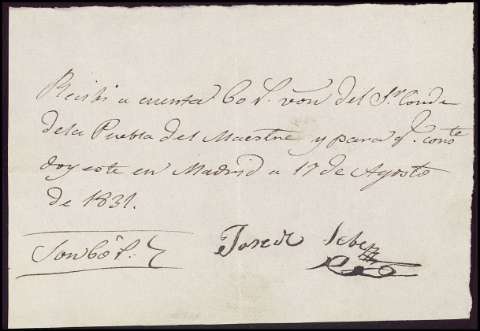 Recibi a cuenta 60 r. von del Sr Conde
de la Puebla del Maestre y para q. conste
doy este en Madrid a 17 de Agosto
de 1831.
Son 60 r.
Jose de